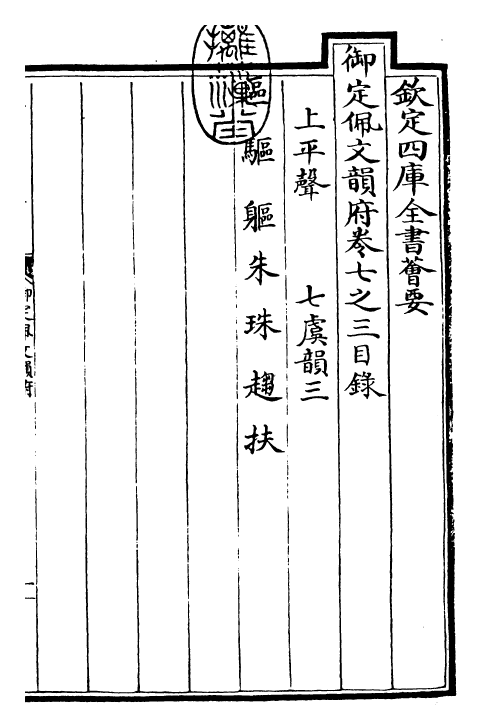 欽定四庫全書薈要
御定佩文韻府卷七之三目錄
上平聲　七虞韻三
驅　軀　朱　珠　趨　扶